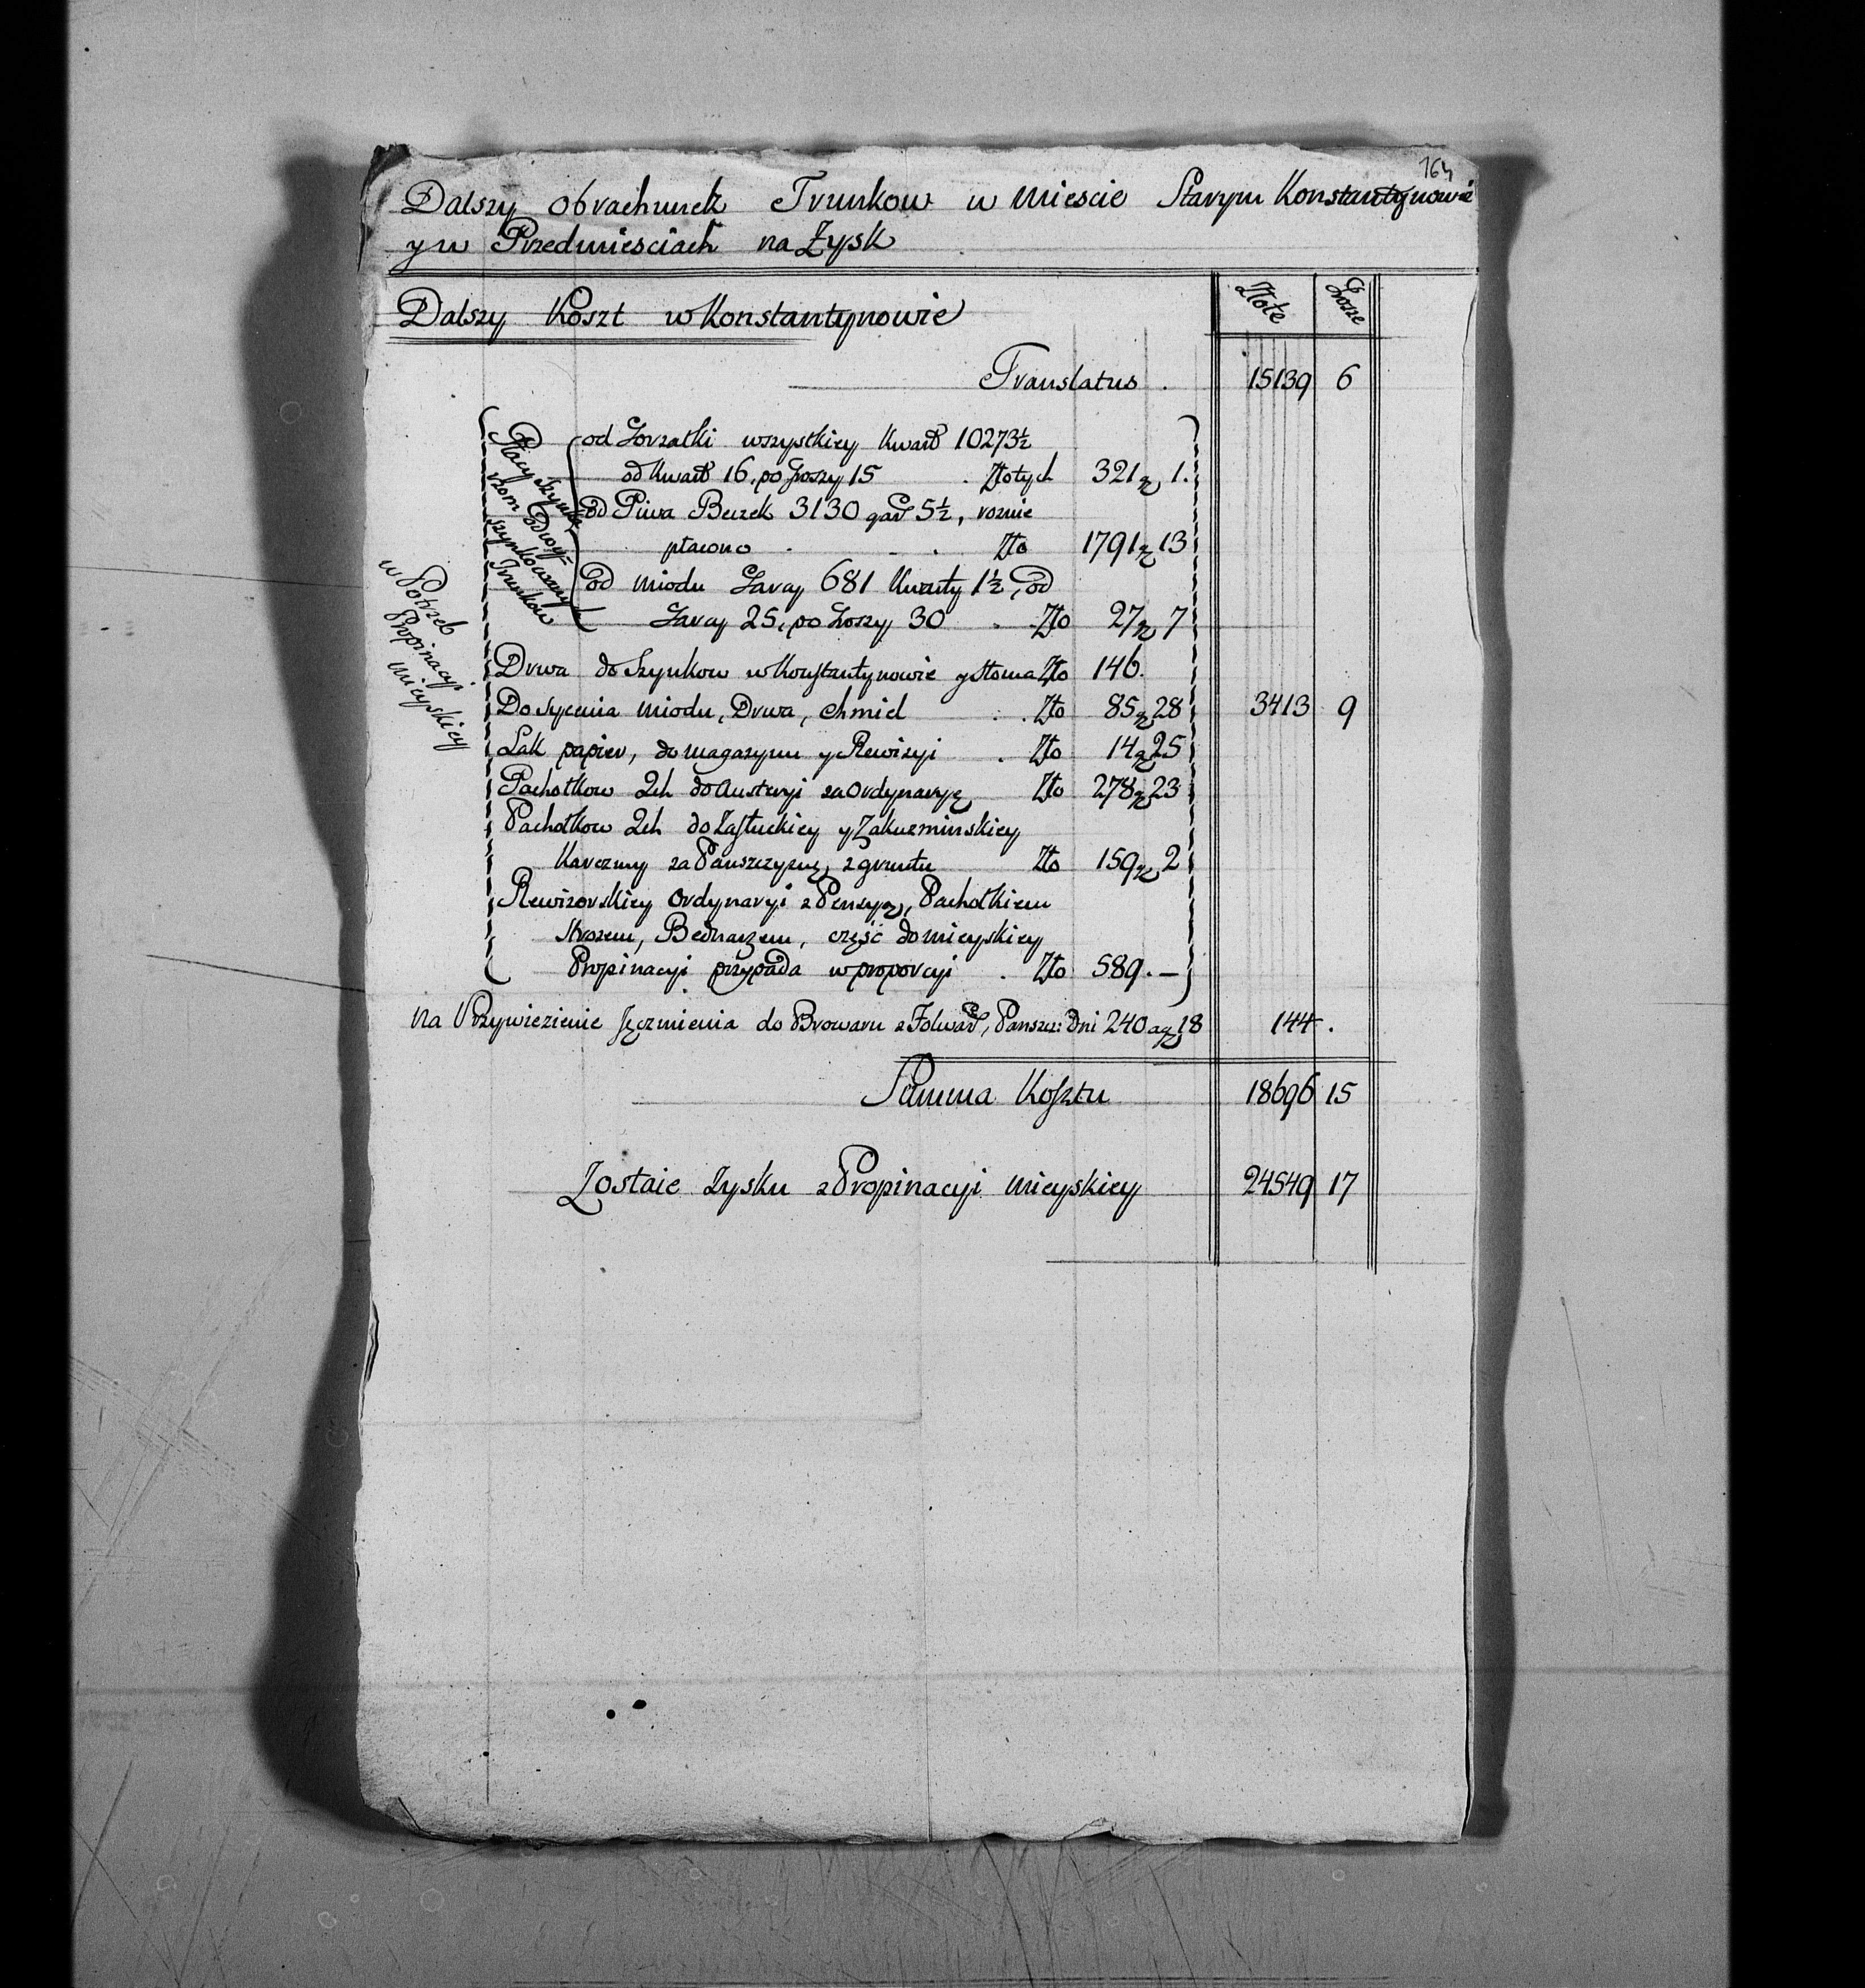 164
Dalszy obrachunek Trunkow w Miescie Starym Konstantynowie
y w Przedmiesciach na Zysk
Złote Grosze
Dalszy Koszt w Konstantynowie
Translatus . 15139 6
Płacy Szynka-
rzom od wy-
szynkowanych
Trunkow
od Gorzałki wszystkiey Kwart 10273½
od Kwart 16, po Groszy 15 . Złotych 321 gr 1.
od Piwa Beczek 3130 gar 5½, roznie
płacono . . Zło 1791 gr 13
od Miodu Garcy 681 Kwarty 1½, od
Garcy 25, po Groszy 30 . . Zło 27 gr 7
w Potrzeb
Propinacyi
Mieyskiey
Drwa do Szynkow w Konstantynowie y Słoma Zło 146.
Do Sycenia Miodu, Drwa, Chmiel . . Zło 85 gr 28 3413 9
Lak papier, do magazynu y Rewizyi . Zło 14 gr 25
Pachołkow 2ch do Austeryi za Ordynaryą Zło 278 gr 23
Pachołkow 2ch do Zasłuckiey y Zakuzminskiey
Karczmy za Panszczyznę z gruntu Zło 159 gr 2
Rewizorskiey Ordynaryi z Pensyą, Pachołkiem
Strozem, Bednarzem, część do mieyskiey
Propinacyi przypada w proporcyi . Zło 589. —
Na Przywiezienie Jęczmienia do Browaru z Folwar, Panszcz: Dni 240 a gr 18 144 .
Summa Kosztu 18696 15
Zostaie Zysku z Propinacyi Mieyskiey 24549 17